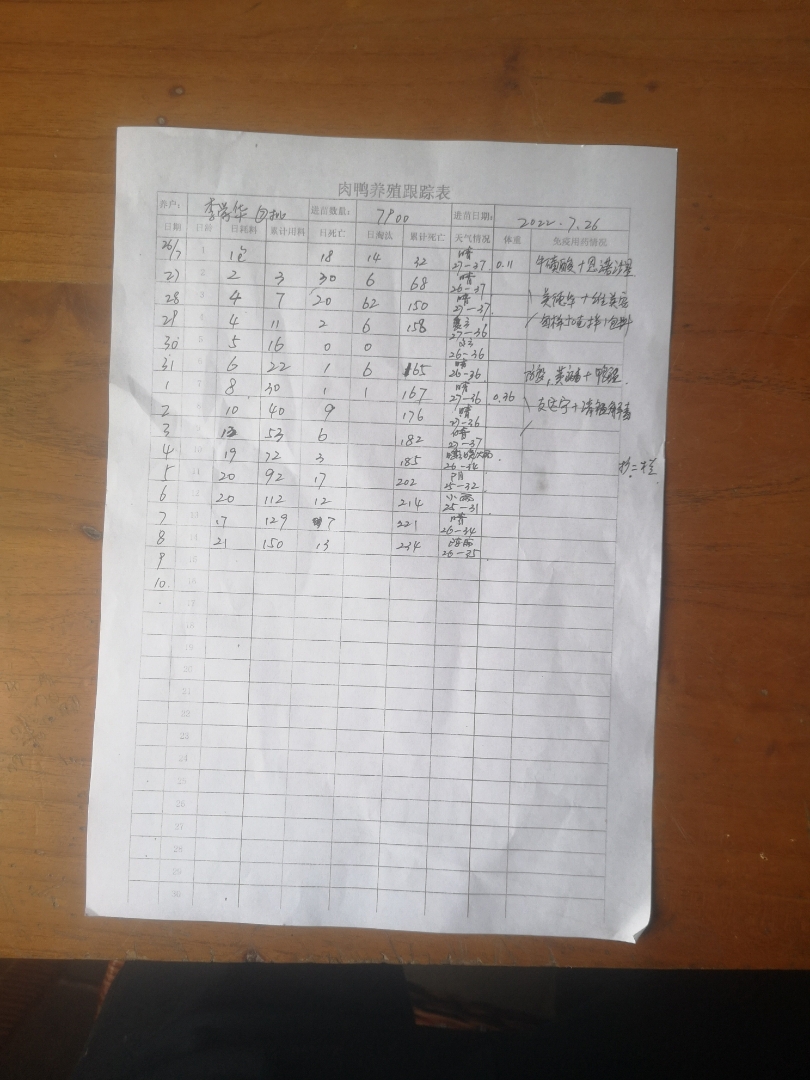 肉鸭养殖跟踪表
养户: 李 华 进苗数量: 7900 进苗日期: 2022.7.26
日期 日龄 日耗料 累计用料 日死亡 日淘汰 累计死亡 天气情况 体重 免疫用药情况
26/7 1 1包 18 14 32 晴 27-37 0.11 牛磺酸+恩诺沙星
27 2 2 3 30 6 68 晴 26-37
28 3 4 7 20 62 150 晴 27-37
29 4 4 11 2 6 158 27-36
30 5 5 16 0 0 26-36
31 6 6 22 1 6 165 晴 26-36
1 7 8 30 1 1 167 晴 27-36 0.36
2 10 40 9 176 晴 27-36
3 13 53 6 182 晴 27-37
4 19 72 3 185 26-34
5 11 20 92 17 202 阴 25-32
6 20 112 12 214 小雨 25-31
7 13 17 129 7 221 晴 26-34
8 21 150 13 234 26-35
9 15
10. 16
17
18
19
20
21
22
23
24
25
26
27
28
29
30